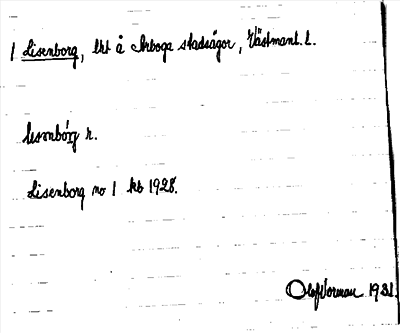 1 Lisenborg, lht å Arboga stadsägor, Västmanl. l.
lı̀sənbórj h.
Lisenborg no 1 kb 1928.
Olof Vorman 1931.